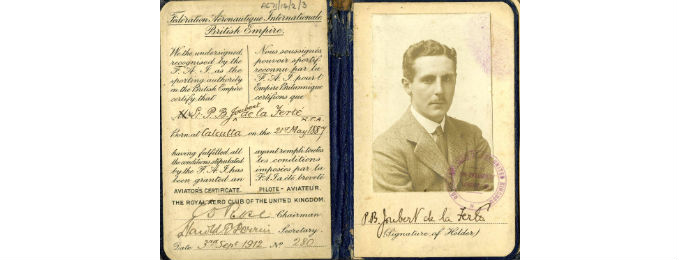 AC71/12/2/3
Fédération Aéronautique Internationale
British Empire.
We the undersigned,
recognised by the
F.A.I. as the
sporting authority
in the British Empire
certify that
Nous soussignés
pouvoir sportif
reconnu par la
F.A.I. pour l'
Empire Britannique
certifions que
P. B. Joubert de la Ferté
Born at Calcutta on the 21st May 1887
having fulfilled all
the conditions stipulated
by the F.A.I. has
been granted an
ayant rempli toutes
les conditions
imposées par la
F.A.I. a été breveté
AVIATOR'S CERTIFICATE. PILOTE-AVIATEUR.
THE ROYAL AERO CLUB OF THE UNITED KINGDOM.
Chairman
Harold E Perrin Secretary.
Date 3rd Sept 1912 No 280
P.B. Joubert de la Ferté
(Signature of Holder)